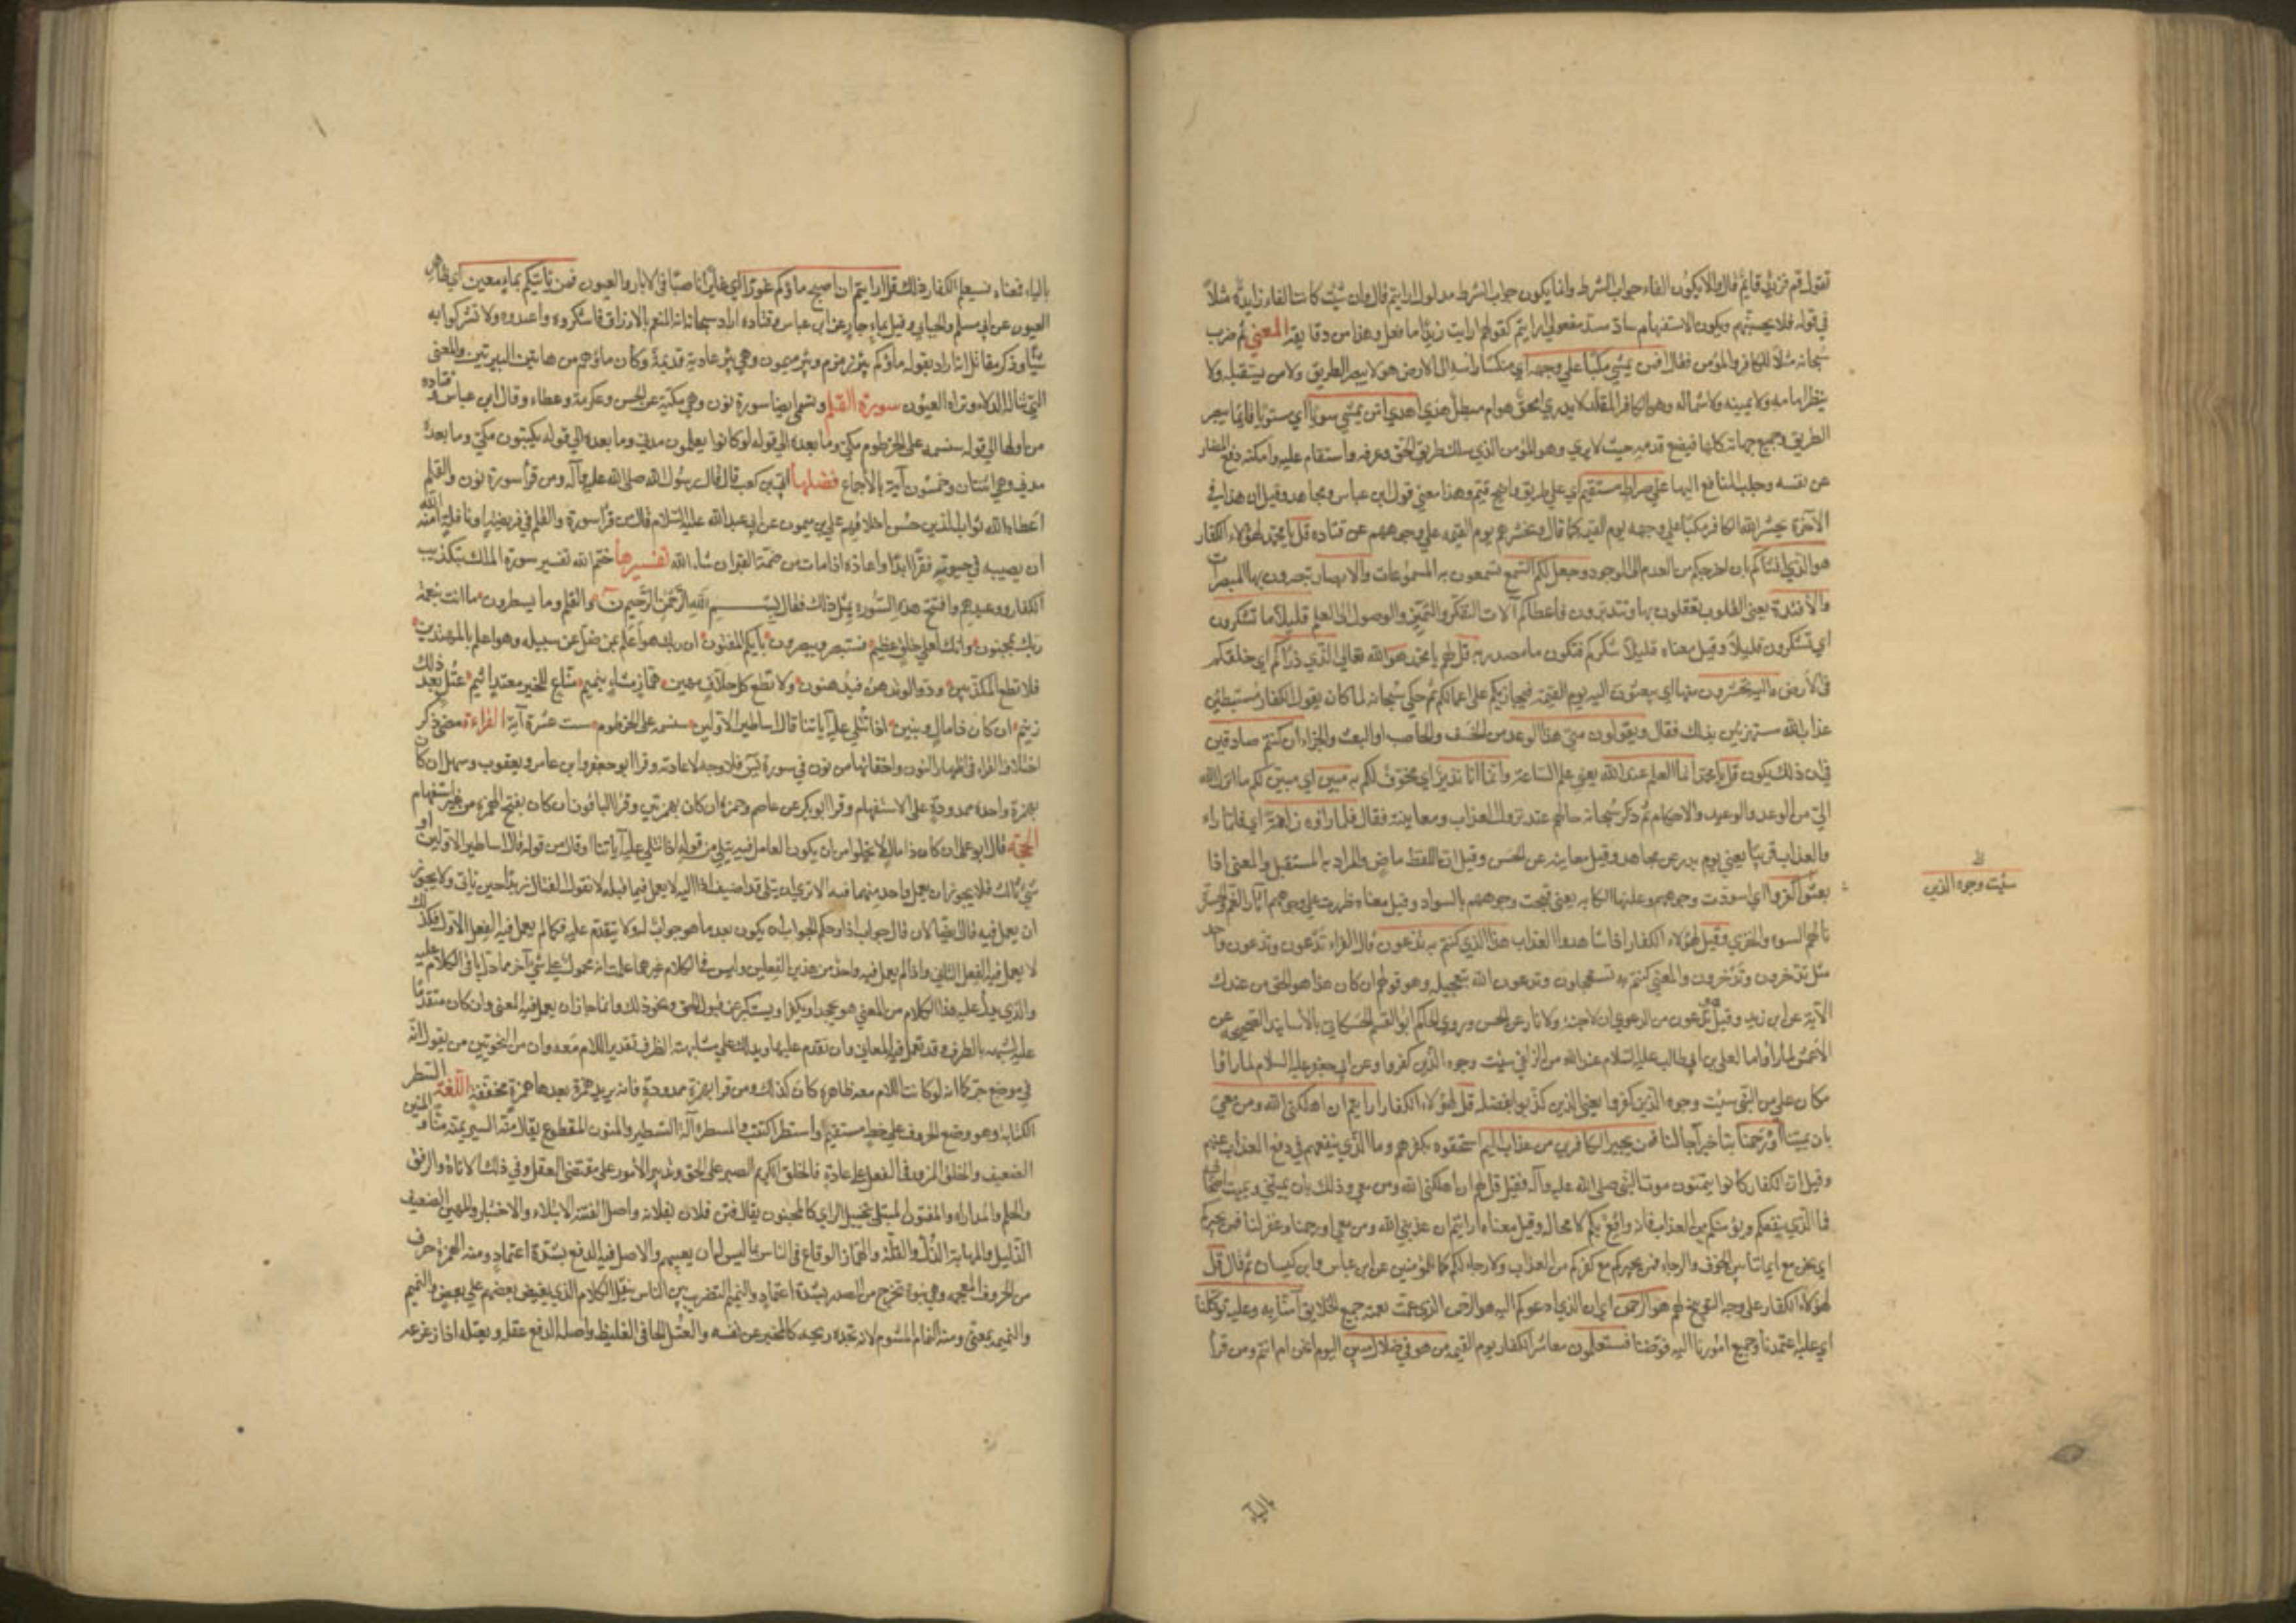 تقول قم فزيد قايم قال ولا يكون الفاء جواب الشرط وانما يكون جواب الشرط مدلول ارايتم قال وان شئت كانت الفاء زايدة مثلها
في قوله فلا يحسبنهم ويكون الاستفهام ساد مسد مفعولي ارايتم كقولهم ارايت زيدا ما فعل وهذا من دقايقه المعني ثم ضرب
سبحانه مثلا للكافر والمؤمن فقال افمن يمشي مكبا علي وجهه اي منكسا راسه الى الارض هو لا يبصر الطريق ولا من يستقبله ولا
ينظر امامه ولا يمينه ولا شماله وهو الكافر المقلد لا يدري امحق هو ام مبطل اهدي امن يمشي سويا اي مستويا قايما يبصر
الطريق وجميع جهاته كلها فيضع قدمه حيث لا يهوي وهو المؤمن الذي سلك طريق الحق وعرفه واستقام عليه وامكنه دفع المضار
عن نفسه وجلب المنافع اليها على صراط مستقيم اي على طريق واضح قيم وهذا معني قول ابن عباس ومجاهد وقيل ان هذا في
الآخرة يحشر الله الكافر مكبا على وجهه يوم القيمة كما قال ونحشرهم يوم القيمة علي وجوههم عن قتادة قل يا محمد لهؤلاء الكفار
هو الذي انشاكم بان اخرجكم من العدم الى الوجود وجعل لكم السمع تسمعون به المسموعات والابصار تبصرون بها المبصرات
والافئدة يعني القلوب تعقلون بها وتتدبرون فاعطاكم آلات التفكر والتميز والوصول الى العلم قليلا ما تشكرون
اي تشكرون قليلا وقيل معناه قليلا شكركم فتكون ما مصدرية قل لهم يا محمد هو الله تعالى الذي ذراكم اي خلقكم
في الارض واليه تحشرون منها اي يبعثون اليه يوم القيمة فيجازيكم على اعمالكم ثم حكي سبحانه لما كان يقول الكفار مستبطئين
عذاب الله مستهزئين بذلك فقال ويقولون متي هذا الوعد من الخسف والحاصب او البعث والجزاء ان كنتم صادقين
في ان ذلك يكون قل يا محمد انما العلم عند الله يعني علم الساعة وانما انا نذير اي مخوف لكم به مبين اي مبين لكم ما انزل الله
الي من الوعد والوعيد والاحكام ثم ذكر سبحانه حالهم عند نزول العذاب ومعاينته فقال فلما راوه زلفة اي فلما راوا
والعذاب قريبا يعني يوم بدر عن مجاهد وقيل معاينة عن الحسن وقيل ان اللفظ ماض والمراد به المستقبل والمعنى اذا
بعثوا كفروا اي اسودت وجوههم وعلتها الكآبة يعني قبحت وجوههم بالسواد وقيل معناه ظهرت علي وجوههم آثار الغم والحسرة
سيئت وجوه الذين
نالهم السوء والخزي وقيل لهؤلاء الكفار اذا شاهدوا العذاب هذا الذي كنتم به تدعون قال الفراء تدعون وتدعون واحد
مثل تذخرون وتدخرون والمعني كنتم به تستعجلون وتدعون الله بتعجيله وهو قولهم ان كان هذا هو الحق من عندك
الآية عن ابن زيد وقيل تدعون من الدعوي ان لا جنة ولا نار عن الحسن وروي الحاكم ابو القسم الحسكاني بالاسانيد الصحيحة عن
الاعمش لما راوا ما لعلي بن ابي طالب عليه السلام عند الله من الزلفي سيئت وجوه الذين كفروا وعن ابي جعفر عليه السلام لما راوا
مكان علي من النبي سيئت وجوه الذين كفروا يعني الذين كذبوا بفضله قل لهؤلاء الكفار ارايتم ان اهلكني الله ومن معي
بان يميتنا او رحمنا بتاخير آجالنا فمن يجير الكافرين من عذاب اليم استحقوه بكفرهم وما الذي ينفعهم في دفع العذاب عنهم
وقيل ان الكفار كانوا يتمنون موت النبي صلى الله عليه وآله فقيل قل لهم ان اهلكني الله ومن معي وذلك بان يميتني ويميت اصحابي
فما الذي ينفعكم ويؤمنكم من العذاب فانه واقع بكم لا محال وقيل معناه ارايتم ان عذبني الله ومن معي او رحمنا وغفر لنا فمن يجيركم
اي نحن مع ايماننا بين الخوف والرجاء فمن يجيركم مع كفركم من العذاب ولا رجاء لكم كما للمؤمنين عن ابن عباس وابن كيسان ثم قال قل
لهؤلاء الكفار على وجه التوبيخ لهم هو الرحمن اي ان الذي ادعوكم اليه هو الرحمن الذي عمت نعمته جميع الخلايق آمنا به وعليه توكلنا
اي عليه اعتمدنا وجميع امورنا اليه فوضنا فستعلمون معاشر الكفار يوم القيمة من هو في ضلال مبين اليوم انحن ام انتم ومن قرا
بالياء
بالياء فمعناه فسيعلم الكفار ذلك قل ارايتم ان اصبح ماؤكم غورا اي غايرا ناضبا في الابار والعيون فمن ياتيكم بماء معين اي ظاهر
العيون عن ابي مسلم والجبايي وقيل بماء جار عن ابن عباس وقتاده اراد سبحانه انه المنعم بالارزاق فاشكروه واعبدوه ولا تشركوا به
شيئا وذكر مقاتل انه اراد بقوله ماؤكم بئر زمزم وبئر ميمون وهي بئر عادية قديمة وكان ماؤهم من هاتين البيرتين والمعنى
التي تناله الدلاء وتراه العيون سورة القلم وتسمى ايضا سورة نون وهي مكية عن الحسن وعكرمة وعطاء وقال ابن عباس وقتاده
من اولها الي قوله سنسمه على الخرطوم مكي وما بعده الي قوله لو كانوا يعلمون مدني وما بعده الي قوله يكتبون مكي وما بعده
مدني وهي اثنتان وخمسون آية بالاجماع فضلها ابي بن كعب قال قال رسول الله صلى الله عليه وآله ومن قرا سورة نون والقلم
اعطاه الله ثواب الذين حسن اخلاقهم علي بن ميمون عن ابي عبد الله عليه السلام قال من قرا سورة والقلم في فريضة او نافلة آمنه الله
ان يصيبه في حيوته فقر ابدا واعاذه اذا مات من ضمة القبر ان شاء الله تفسيرها ختم الله تفسير سورة الملك بتكذيب
الكفار ووعيدهم وافتتح هذه السورة بمثل ذلك فقال بسم الله الرحمن الرحيم ن والقلم وما يسطرون ما انت بنعمة
ربك بمجنون وانك لعلي خلق عظيم فستبصر ويبصرون بايكم المفتون ان ربك هو اعلم بمن ضل عن سبيله وهو اعلم بالمهتدين
فلا تطع المكذبين ودوا لو تدهن فيدهنون ولا تطع كل حلاف مهين هماز مشاء بنميم مناع للخير معتد اثيم عتل بعد ذلك
زنيم ان كان ذا مال وبنين اذا تتلى عليه آياتنا قال اساطير الاولين سنسمه على الخرطوم ست عشرة آية القراءة مضي ذكر
اختلاف القراء في اظهار النون واخفائها من نون في سورة يس فلا وجه لاعادته وقرا ابو جعفر وابن عامر ويعقوب وسهل ان كان
بهمزة واحدة ممدودة على الاستفهام وقرا ابو بكر عن عاصم وحمزة ان كان بهمزتين وقرا الباقون ان كان بفتح الهمزة من غير استفهام
الحجة قال ابو علي ان كان ذا مال لا يخلوا من ان يكون العامل فيه تتلي من قوله اذا تتلي عليه آياتنا او قال من قوله قال اساطير الاولين او
شيء ثالث فلا يجوز ان يعمل واحد منهما فيه الا تري ان تتلي قد اضيف اذا اليه لا يعمل فيما قبله لا تقول القتال زيدا حين ياتي ولا يجوز
ان يعمل فيه قال ايضا لان قال جواب اذا وحكم الجواب ان يكون بعد ما هو جواب له ولا يتقدم عليه فكما لم يعمل فيه الفعل الاول فكذلك
لا يعمل فيه الفعل الثاني واذا لم يعمل فيه واحد من هذين الفعلين وليس في الكلام غيرهما علمت انه محمول علي شيء آخر مما يدل باقي الكلام عليه
والذي يدل عليه هذا الكلام من المعني هو يجحد او يكفر او يستكبر عن قبول الحق ونحو ذلك وانما جاز ان يعمل فيه المعني وان كان متقدما
عليه لشبهه بالظرف وقد تعمل فيه المعاني وان تقدم عليها ويدلك علي مشابهته الظرف تقدير اللام معه وان من النحويين من يقول انه
في موضع جر كما انه لو كانت اللام معه ظاهرة كان كذلك ومن قرا بهمزة ممدودة فانه يريد همزة بعدها همزة مخففة اللغة السطر
الكتابة وهو وضع الحروف علي خط مستقيم واستطر اكتتب والمسطرة آلة التسطير والمنون المقطوع يقال منه السير يمنه منا والمنين
الضعيف والخلق المرور في الفعل علي عادة فالخلق الكريم الصبر على الحق وتدبير الامور على مقتضي العقل وفي ذلك الاناة والرفق
والحلم والمداراه والمفتون المبتلي بتخييل الراي كالمجنون يقال فتن فلان بفلانة واصل الفتنة الابتلاء والاختبار والمهين الضعيف
الذليل والمهانة الذلة والقلة والهماز الوقاع في الناس بما ليس له ان يعيبهم والاصل فيه الدفع بشدة اعتماد ومنه الهمزة حرف
من الحروف المعجمة وهي نبرة تخرج من الصدر بشدة اعتماد والنميم التضريب بين الناس بنقل الكلام الذي يغيض بعضهم علي بعض والنميم
والنميمة بمعني ومنه النمام المشموم لانه تجده ريحه كالمخبر عن نفسه والعتل الجافي الغليظ واصله الدفع عتله ويعتله اذا زعزعه